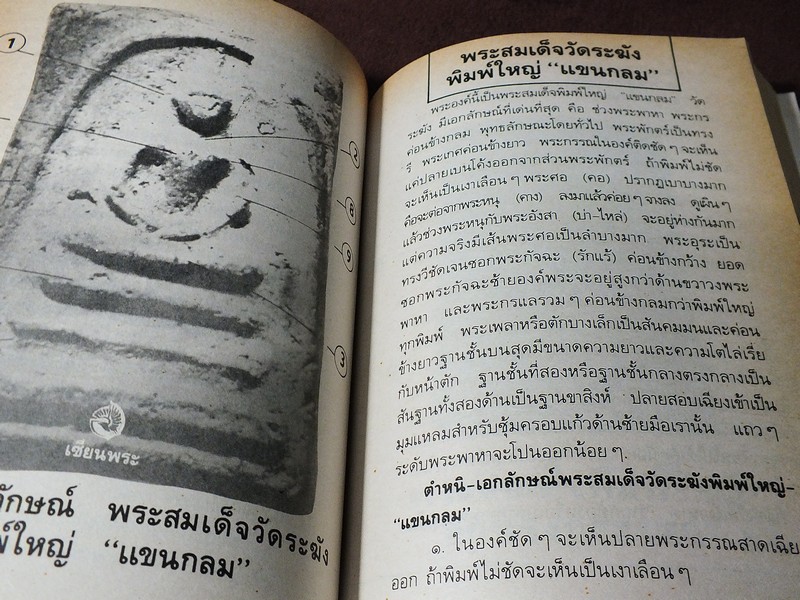 1
2
3
เซียนพระ
ลักษณ์ พระสมเด็จวัดระฆัง
พ์ใหญ่ “แขนกลม”
พระสมเด็จวัดระฆัง
พิมพ์ใหญ่ “แขนกลม”
พระองค์นี้เป็นพระสมเด็จพิมพ์ใหญ่ “แขนกลม” วัด
ระฆัง มีเอกลักษณ์ที่เด่นที่สุด คือ ช่วงพระพาหา พระกร
ค่อนข้างกลม พุทธลักษณะโดยทั่วไป พระพักตร์เป็นทรง
รี พระเกศค่อนข้างยาว พระกรรณในองค์ติดชัดๆ จะเห็น
แค่ปลายเบนโค้งออกจากส่วนพระพักตร์ ถ้าพิมพ์ไม่ชัด
จะเห็นเป็นเงาเลือนๆ พระศอ (คอ) ปรากฏเบาบางมาก
คือจะต่อจากพระหนุ (คาง) ลงมาแล้วค่อยๆ จางลง ดูเผินๆ
แล้วช่วงพระหนุกับพระอังสา (บ่า-ไหล่) จะอยู่ห่างกันมาก
แต่ความจริงมีเส้นพระศอเป็นลำบางมาก พระอุระเป็น
ทรงวีชัดเจนซอกพระกัจฉะ (รักแร้) ค่อนข้างกว้าง ยอด
ซอกพระกัจฉะซ้ายองค์พระจะอยู่สูงกว่าด้านขวาวงพระ
พาหา และพระกรแลรวมๆ ค่อนข้างกลมกว่าพิมพ์ใหญ่
ทุกพิมพ์ พระเพลาหรือตักบางเล็กเป็นสันคมมนและค่อน
ข้างยาวฐานชั้นบนสุดมีขนาดความยาวและความโตไล่เรี่ย
กับหน้าตัก ฐานชั้นที่สองหรือฐานชั้นกลางตรงกลางเป็น
สันฐานทั้งสองด้านเป็นฐานขาสิงห์ ปลายสอบเฉียงเข้าเป็น
มุมแหลมสำหรับซุ้มครอบแก้วด้านซ้ายมือเรานั้น แถวๆ
ระดับพระพาหาจะโปนออกน้อยๆ.
ตำหนิ-เอกลักษณ์พระสมเด็จวัดระฆังพิมพ์ใหญ่-
“แขนกลม”
๑. ในองค์ชัดๆ จะเห็นปลายพระกรรณสาดเฉีย
ออก ถ้าพิมพ์ไม่ชัดจะเห็นเป็นเงาเลือนๆ